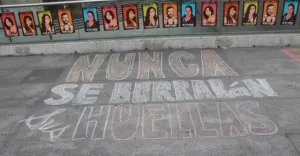 NUNCA
SE BORRARÁN
sus HUELLAS